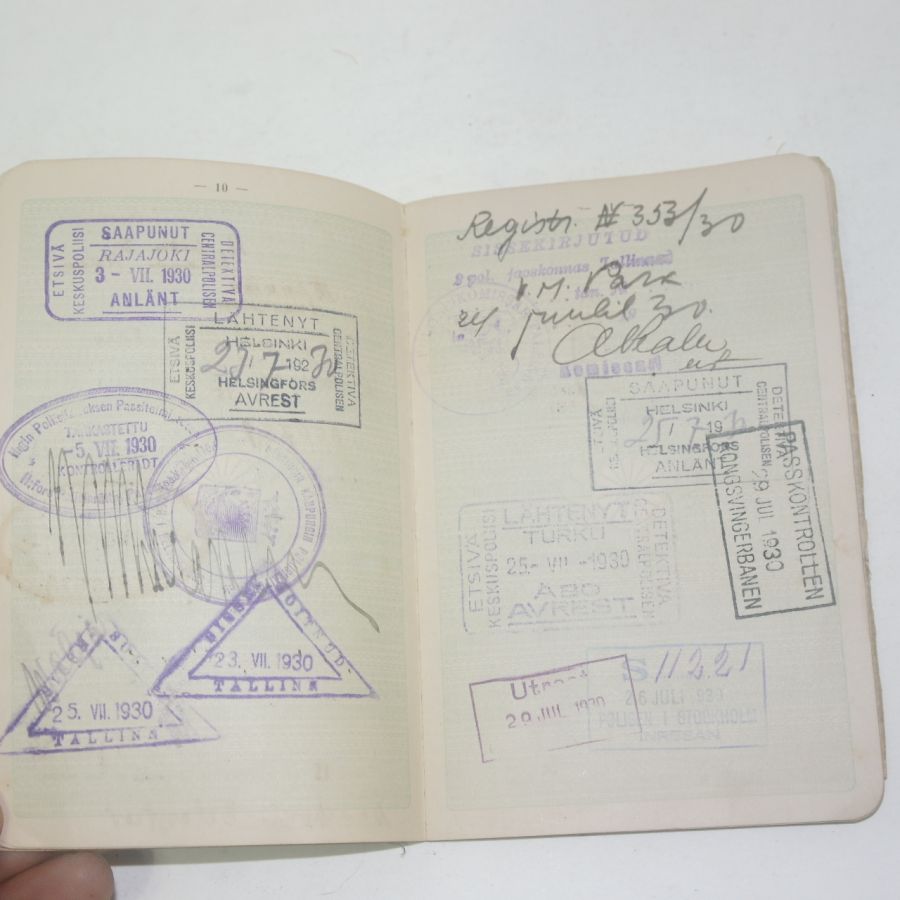 — 10 —
ETSIVÄ
KESKUSPOLIISI
SAAPUNUT
RAJAJOKI
3 - VII. 1930
ANLÄNT
DETEKTIVA
CENTRALPOLISEN
ETSIVÄ
KESKUSPOLIISI
LÄHTENYT
HELSINKI
23/7 1930
HELSINGFORS
AVREST
DETEKTIVA
CENTRALPOLISEN
TARKASTETTU
5. VII. 1930
23. VII. 1930
TALLINN
25. VII. 1930
TALLINN
Registr. № 353/30
SISSEKIRJUTUD
2 pol. jaoskonnas Tallinnas
24 juulil 30.
SAAPUNUT
HELSINKI
25/7 1930
HELSINGFORS
ANLÄNT
DETEKTIVA
CENTRALPOLISEN
PASSKONTROLLEN
29 JUL 1930
KONGSVINGERBANEN
ETSIVÄ
KESKUSPOLIISI
LÄHTENYT
TURKU
25 - VII - 1930
ÅBO
AVREST
DETEKTIVA
CENTRALPOLISEN
Utrest
29 JUL 1930
S 11221
26 JULI 1930
POLISEN I STOCKHOLM
INRESAN